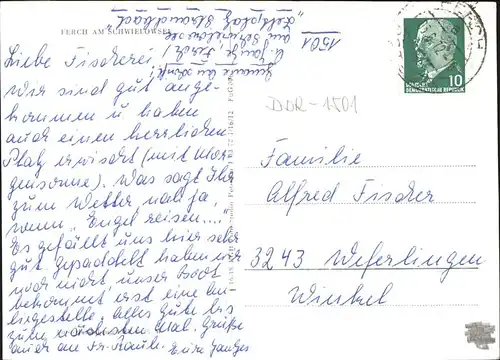 FERCH AM SCHWIELOWSEE
1501
"Zeltplatz Strandbad"
am Schwielowsee
Liebe Fischerei,
wir sind gut ange-
kommen u. haben
auch einen herrlichen
Platz erwischt (mit Mor-
gensonne). Was sagt Ihr
zum Wetter na ja,
wenn "Engel reisen..."
Es gefällt uns hier sehr
gut. Gepaddelt haben wir
noch nicht, unser Boot
bekommt erst eine An-
liegestelle. Alles Gute bis
zum nächsten Mal. Grüße
auch an Fr.
Eure
10
DEUTSCHE
DEMOKRATISCHE REPUBLIK
DDR-1501
Familie
Alfred Fischer
3243 Weferlingen
Winkel